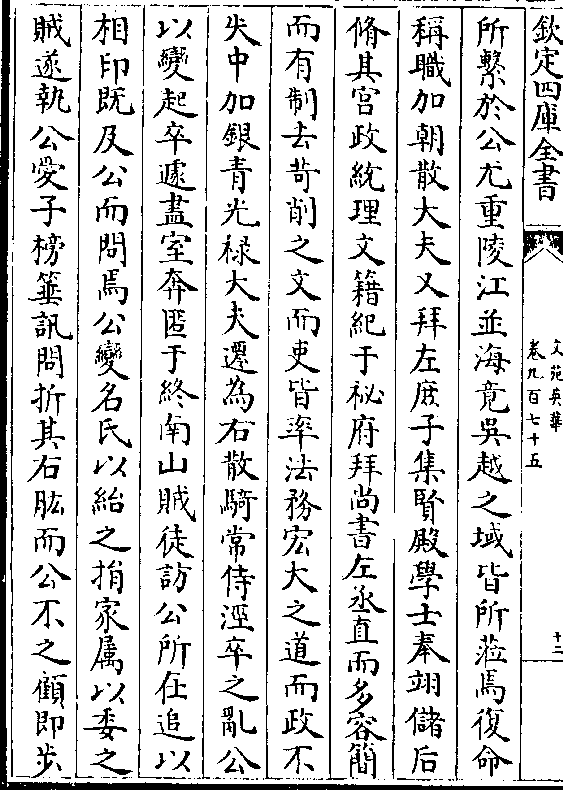 欽定四庫全書
文苑英華
卷九百七十五
十三
所繫於公尤重陵江並海竟吳越之域皆所蒞焉復命
稱職加朝散大夫又拜左庶子集賢殿學士奉翊儲后
脩其宫政統理文籍紀于祕府拜尚書左丞直而多容簡
而有制去苛削之文而吏皆率法務宏大之道而政不
失中加銀青光禄大夫遷為右散騎常侍涇卒之亂公
以變起卒遽盡室奔匿于終南山賊徒訪公所在追以
相印既及公而問焉公變名氏以紿之捐家屬以委之
賊遂執公愛子榜箠訊問折其右肱而公不之顧即步